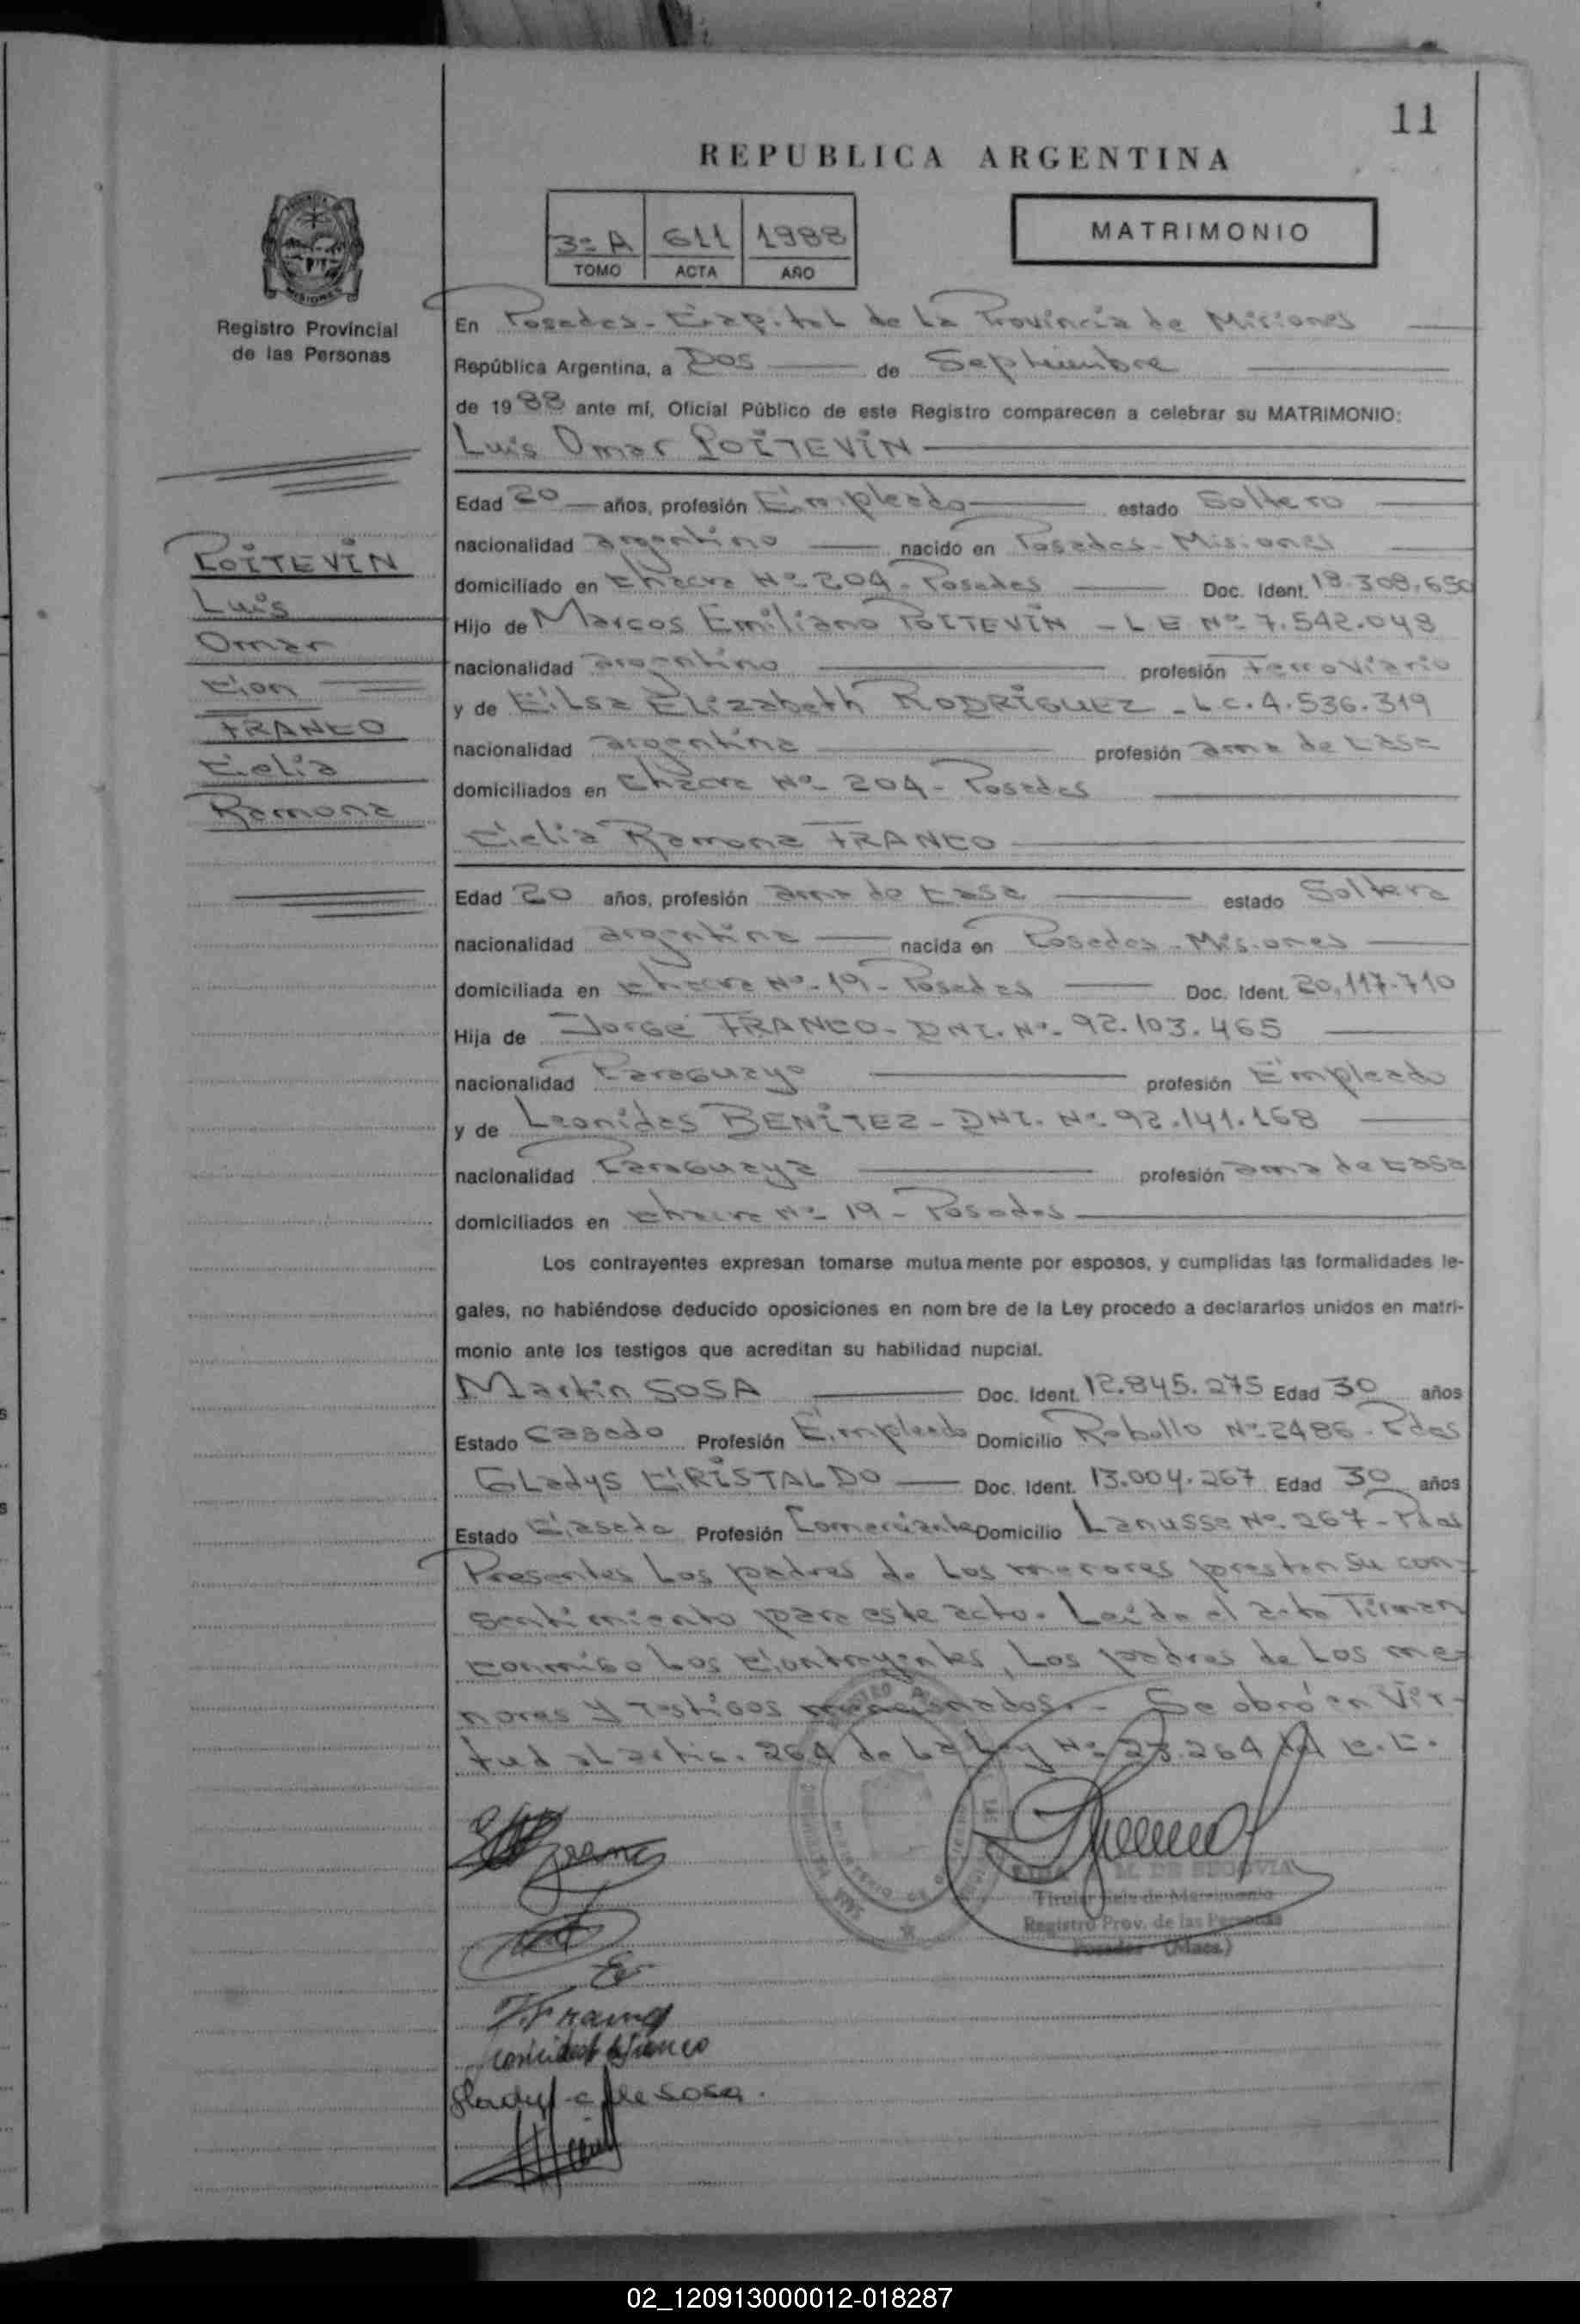 11
REPUBLICA ARGENTINA
3º A 611 1988
TOMO ACTA AÑO
MATRIMONIO
MISIONES
Registro Provincial
de las Personas
En Posadas - Capital de La Provincia de Misiones
República Argentina, a Dos de Septiembre
de 1988 ante mí, Oficial Público de este Registro comparecen a celebrar su MATRIMONIO:
Luis Omar POITEVIN
Edad 20 años, profesión Empleado estado Soltero
nacionalidad argentino nacido en Posadas - Misiones
domiciliado en Chacra Nº 204 - Posadas Doc. Ident. 18.308.650
Hijo de Marcos Emiliano POITEVIN - L E Nº 7.542.048
nacionalidad argentino profesión Ferroviario
y de Elsa Elizabeth RODRIGUEZ - L.C. 4.536.319
nacionalidad argentina profesión ama de casa
domiciliados en Chacra Nº 204 - Posadas
Celia Ramona FRANCO
Edad 20 años, profesión ama de casa estado Soltera
nacionalidad argentina nacida en Posadas - Misiones
domiciliada en Chacra Nº 19 - Posadas Doc. Ident. 20.117.710
Hija de Jorge FRANCO - DNI. Nº 92.103.465
nacionalidad Paraguayo profesión Empleado
y de Leonidas BENITEZ - DNI. Nº 92.141.168
nacionalidad Paraguaya profesión ama de casa
domiciliados en Chacra Nº 19 - Posadas
POITEVIN
Luis
Omar
Con
FRANCO
Celia
Ramona
Los contrayentes expresan tomarse mutuamente por esposos, y cumplidas las formalidades le-
gales, no habiéndose deducido oposiciones en nombre de la Ley procedo a declararlos unidos en matri-
monio ante los testigos que acreditan su habilidad nupcial.
Martin SOSA Doc. Ident. 12.845.275 Edad 30 años
Estado Casado Profesión Empleado Domicilio Rabollo Nº 2486 - Pdas
Gladys CRISTALDO Doc. Ident. 13.004.267 Edad 30 años
Estado Casada Profesión Comerciante Domicilio Lanusse Nº 267 - Pdas
Presentes Los padres de Los menores prestan su con-
sentimiento para este acto. Leída el acta Firman
conmigo Los Contrayentes, Los padres de Los me-
nores y Testigos mencionados. - Se obró en Vir-
tud al artic. 264 de La Ley Nº 23.264 del C.C.
M. DE SEGOVIA
Titular Sala de Matrimonio
Registro Prov. de las Personas
Posadas - (Mnes.)
J. Franco
Gladys C de Sosa.
02_120913000012-018287